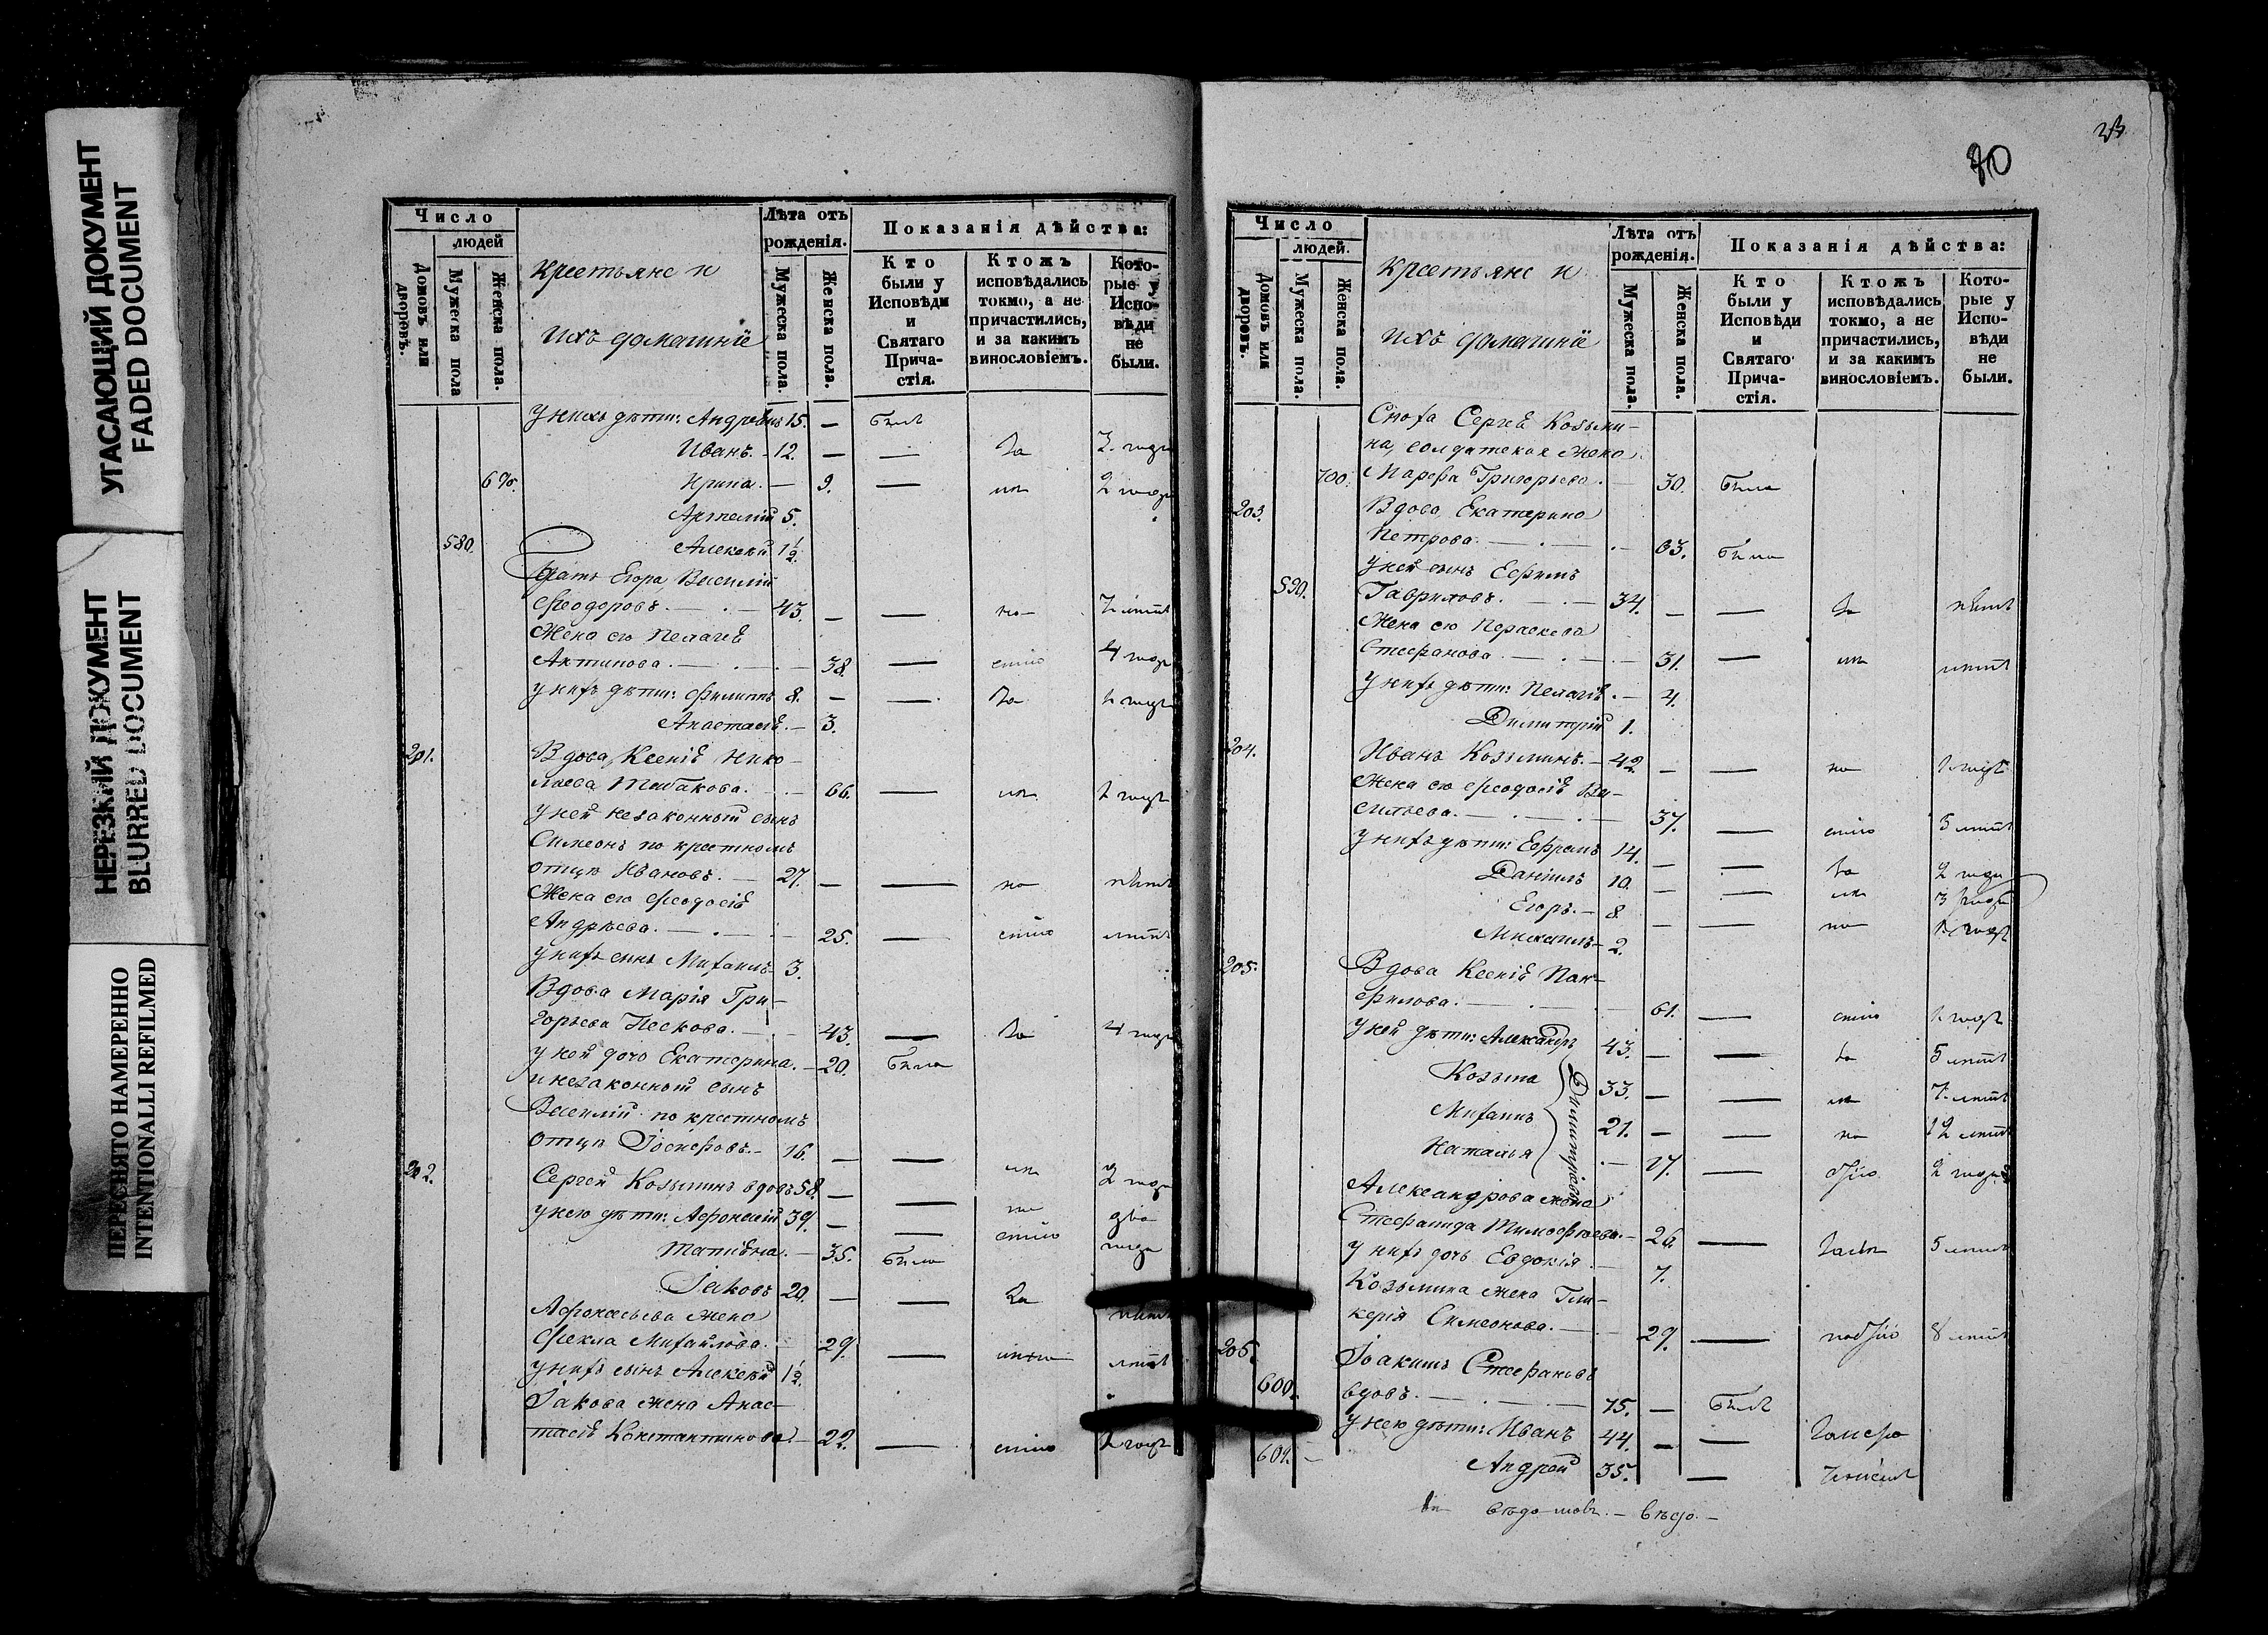 УГАСАЮЩИЙ ДОКУМЕНТ
FADED DOCUMENT
НЕРЕЗКИЙ ДОКУМЕНТ
BLURRED DOCUMENT
ПЕРЕСНЯТО НАМЕРЕННО
INTENTIONALLI REFILMED
Число
людей
Домовъ или дворовъ.
Мужеска пола
Женска пола.
Крестьяне и
ихъ домашніе
Лѣта отъ рожденія.
Мужеска пола.
Женска пола.
Показанія дѣйства:
Кто были у Исповѣди и Святаго Причастія.
Ктожъ исповѣдались токмо, а не причастились, и за какимъ винословіемъ.
Которые у Исповѣди не были.
У нихъ дѣти: Андрей 15. — былъ
Иванъ. — 12. — — За 2 года
690. Ирина. — 9. — 2 года
Артемій 5.
580. Алексѣй 1½.
Братъ Егора, Василій
Феодоровъ. — 43. — — не- 7 лѣтъ
Жена его Пелагеѣ
Антипова. — 38. — 4 года
У нихъ дѣти: Филиппъ 8. — — За 1 годъ
Анастасіѣ. — 3.
201. Вдова, Ксеніѣ Нико-
лаева — 66. — 1 годъ
У ней незаконный сынъ
Симеонъ по крестномъ
отцѣ Ивановъ. — 27. — — не
Жена его Феодосіѣ
Андрѣева. — 25. — лѣтъ
У нихъ сынъ Михаилъ 3.
Вдова Марія Гри-
горьева Пескова. — 43. — За 4 года
У ней дочь Екатерина. — 20. была
и незаконный сынъ
Василій по крестномъ
отцѣ Іосифовъ. — 16. — — 2 года
202. Сергей Козьминъ вдовъ 58. — — не два
У него дѣти: Афонасій 39. — — года
Татіѣна. — 35. была
Іаковъ 20. — — За
Афонасьева жена
Фекла Михайлова. — 29. — лѣтъ
У нихъ сынъ Алексѣй 1½.
Іакова жена Анас-
тасіѣ Константинова — 22. — 1 годъ
80
Число
людей.
Домовъ или дворовъ.
Мужеска пола.
Женска пола.
Крестьяне и
ихъ домашніе
Лѣта отъ рожденія.
Мужеска пола.
Женска пола.
Показанія дѣйства:
Кто были у Исповѣди и Святаго Причастія.
Ктожъ исповѣдались токмо, а не причастились, и за какимъ винословіемъ.
Которые у Исповѣди не были.
Сноха Сергеѣ Козьми-
на, солдатская жена
700. Марфа Григорьева. — 30. была
203. Вдова Екатерина
Петрова. — 63. была
У ней сынъ Ефимъ
590. Гавриловъ. — 34. — — За
Жена его Параскева
Стефанова. — 31. — лѣтъ
У нихъ дѣти: Пелагіѣ. — 4.
Димитрій 1.
204. Иванъ Козьминъ. — 42. — — не 1 годъ
Жена его Феодосіѣ Ва-
сильева. — 37. — 5 лѣтъ
У нихъ дѣти: Ефремъ 14. — — За 2 года
Даніилъ 10. — — 3 года
Егоръ. — 8. — — не 1 годъ
Михаилъ — 2.
205. Вдова Ксеніѣ Пан-
филова. — 61. — 1 годъ
У ней дѣти: Александръ 43. — — За 5 лѣтъ
Козьма 33. — — 7 лѣтъ
Михаилъ 21. — — не 12 лѣтъ
Наталья — 17. — 2 года
Димитріевы
Александрова жена
Стефанида Тимофѣева. — 26. — 5 лѣтъ
У нихъ дочь Евдокія. — 7.
Козьмина жена Гли-
керія Симеонова. — 29. — 8 лѣтъ
206. Іоакимъ Стефановъ
600. вдовъ. — 75. — былъ
У него дѣти: Иванъ 44. — —
601. Андрей 35. —